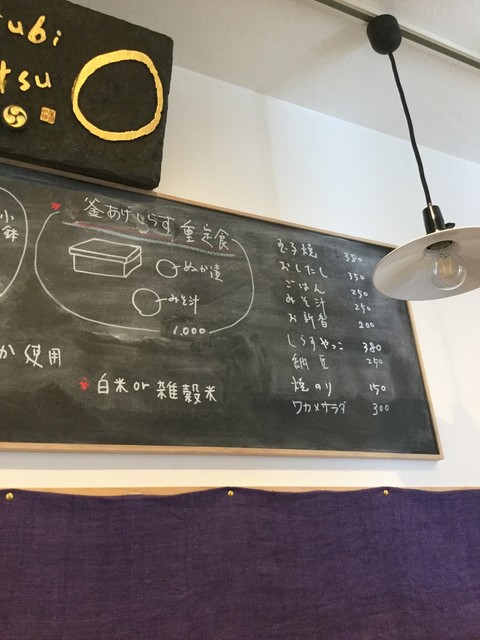 ubi
tsu
小鉢
釜あげしらす重定食
ぬか漬
みそ汁
1.000
か使用
白米or雑穀米
玉子焼 380
おひたし 350
ごはん 250
みそ汁 250
お新香 200
しらすやっこ 380
納豆 250
焼のり 150
ワカメサラダ 300